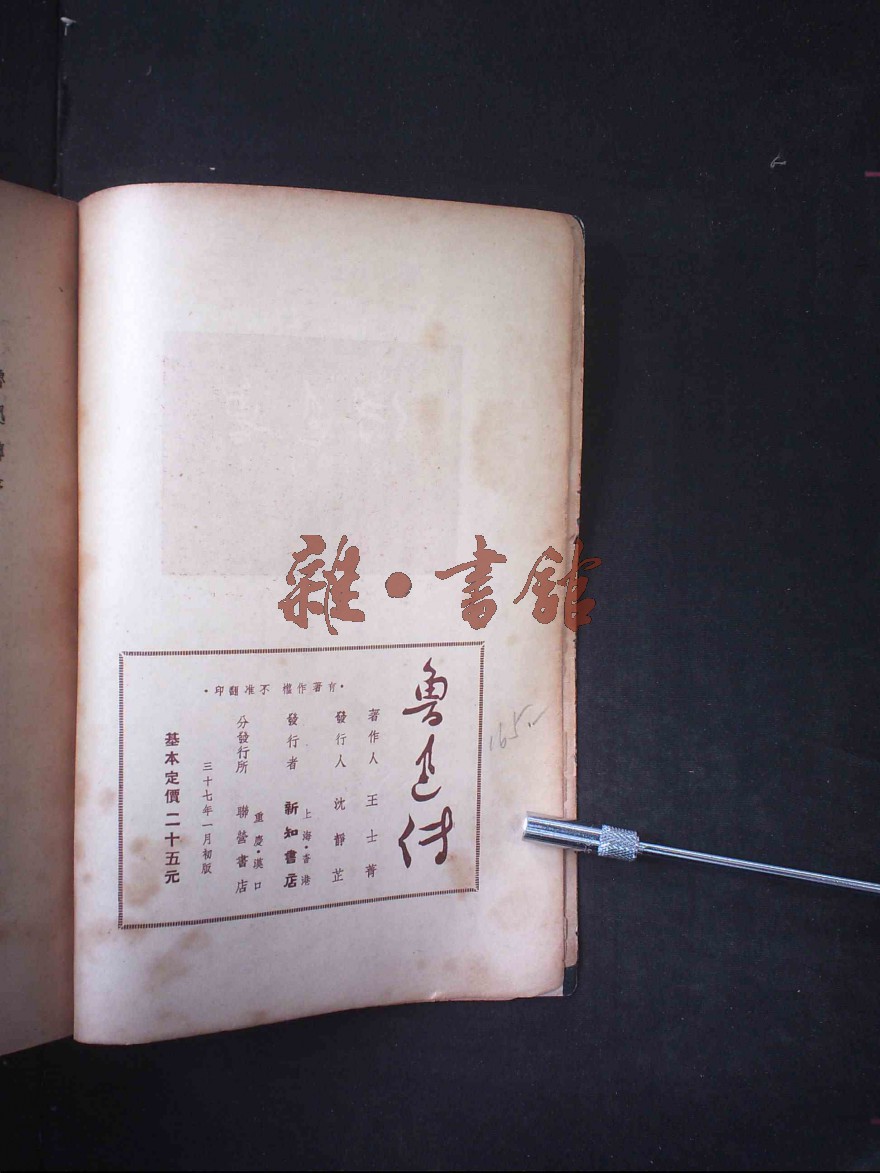 雜·書館
魯迅傳
·有著作權 不准翻印·
著作人 王士菁
發行人 沈靜芷
上海·香港
發行者 新知書店
重慶·漢口
分發行所 聯營書店
三十七年一月初版
基本定價二十五元
165.-